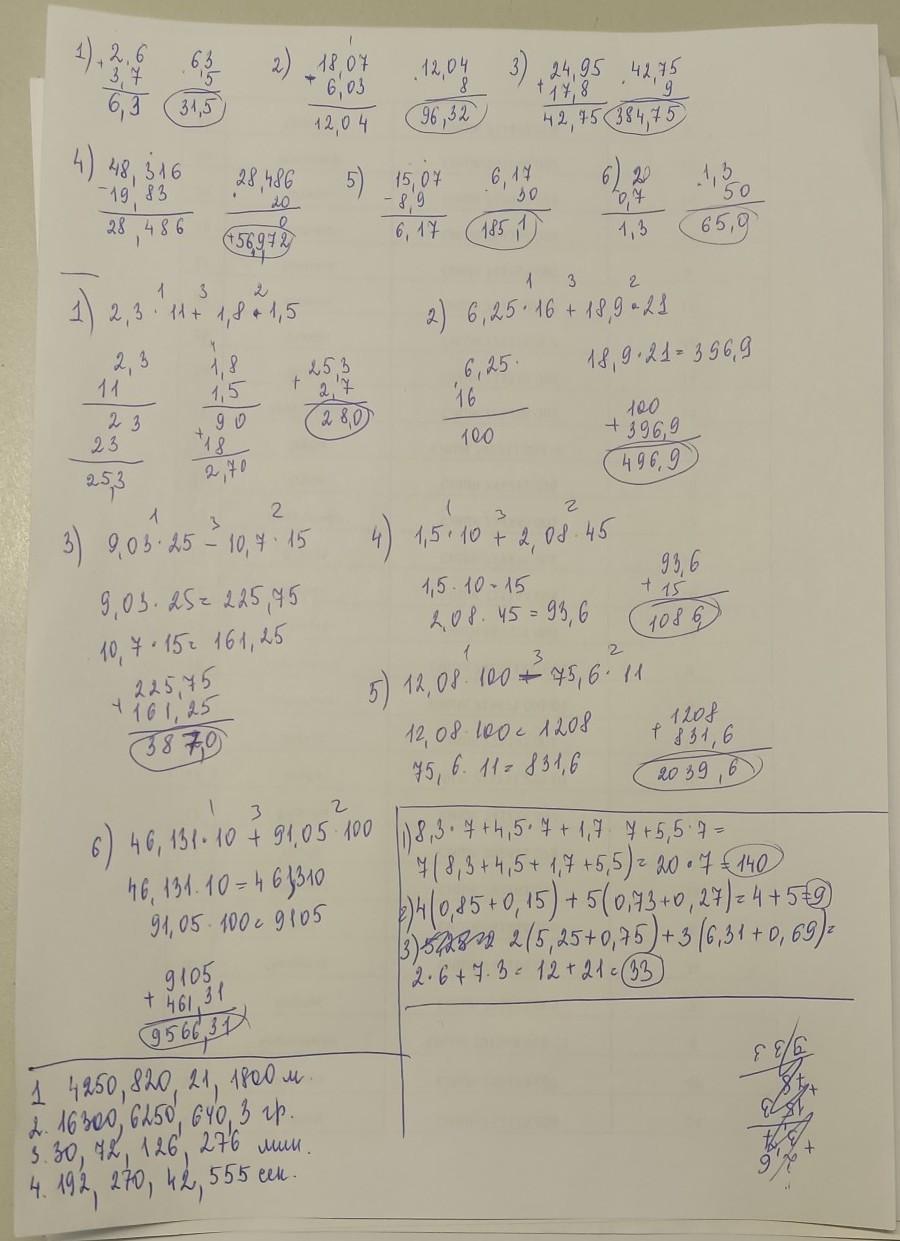 1) + 2,6   63   2) 18,07   12,04   3) 24,95   42,75
3,7   5   6,03   8   + 17,8   9
6,3   31,5   12,04   96,32   42,75   384,75
4) 48,316   28,486   5) 15,07   6,17   6) 20   1,3
- 19,83   20   - 8,9   30   0,7   50
28,486   0   6,17   185,1   1,3   65,9
+56972
1) 2,3 · 11 + 1,8 · 1,5
2,3   1,8   + 25,3
11   1,5   2,7
23   90   28,0
23   + 18
25,3   2,70
2) 6,25 · 16 + 18,9 · 21
6,25   18,9 · 21 = 396,9
16   100
100   + 396,9
496,9
3) 9,03 · 25 - 10,7 · 15
9,03 · 25 = 225,75
10,7 · 15 = 161,25
225,75
+ 161,25
387,0
4) 1,5 · 10 + 2,08 · 45
1,5 · 10 = 15   93,6
2,08 · 45 = 93,6   + 15
108 6,
5) 12,08 · 100 + 75,6 · 11
12,08 · 100 = 1208   1208
75,6 · 11 = 831,6   + 831,6
2039,6
6) 46,131 · 10 + 91,05 · 100
46,131 · 10 = 461,310
91,05 · 100 = 9105
9105
+ 461,31
9566,31
1) 8,3 · 7 + 4,5 · 7 + 1,7 · 7 + 5,5 · 7 =
7(8,3 + 4,5 + 1,7 + 5,5) = 20 · 7 = 140
2) 4(0,85 + 0,15) + 5(0,73 + 0,27) = 4 + 5 = 9
3) 2(5,25 + 0,75) + 3(6,31 + 0,69) =
2 · 6 + 7 · 3 = 12 + 21 = 33
1 4250, 820, 21, 1800 м.
2. 16300, 6250, 640, 3 гр.
3. 30, 72, 126, 276 мин.
4. 192, 270, 42, 555 сек.